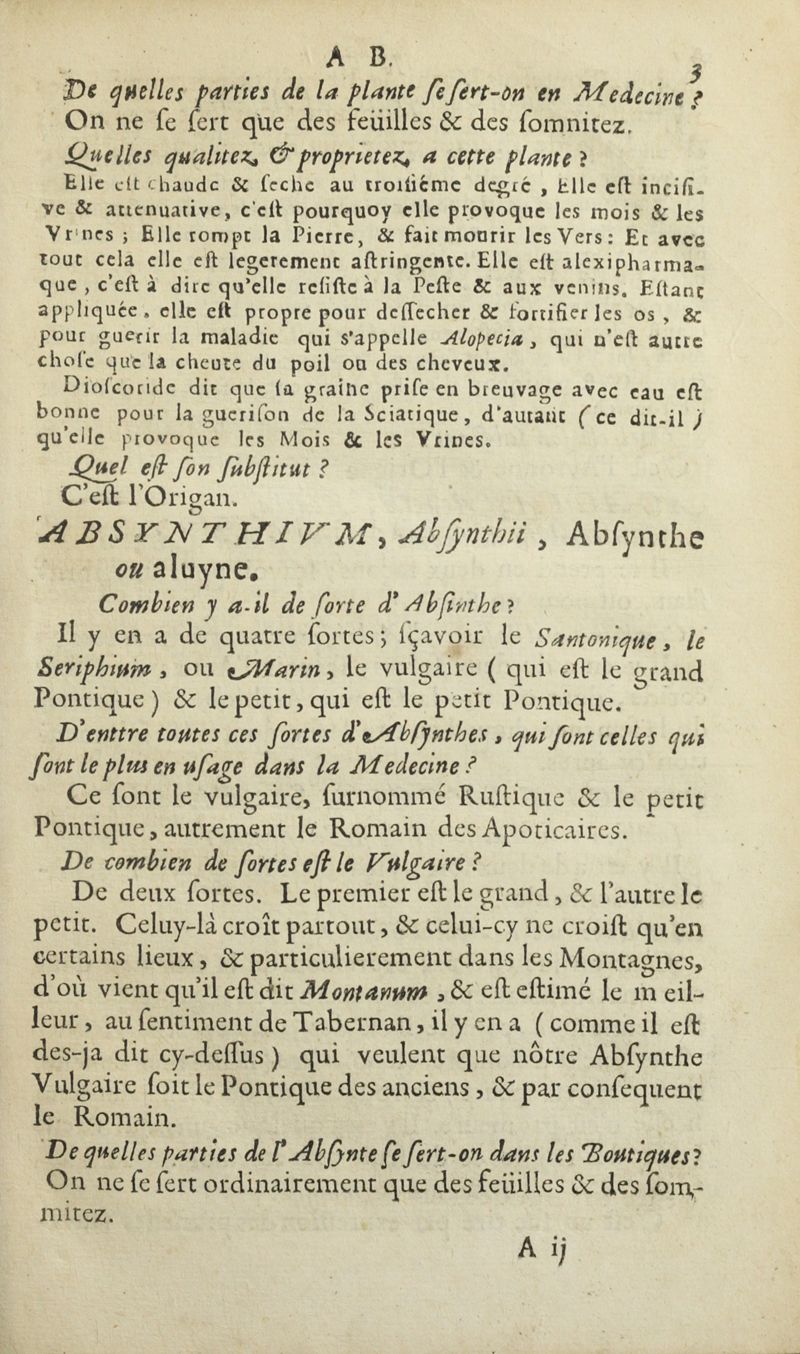 A B.
3
De quelles parties de la plante se sert-on en Medecine ?
On ne ſe ſert que des feüilles & des ſomnitez.
Quelles qualitez, & proprietez, a cette plante ?
Elle eſt chaude & ſeche au troiſiéme degré , Elle eſt inciſi-
ve & attenuative, c'eſt pourquoy elle provoque les mois & les
Vrines ; Elle rompt la Pierre, & fait mourir les Vers: Et avec
tout cela elle eſt legerement aſtringente. Elle eſt alexipharma-
que , c'eſt à dire qu'elle reſiſte à la Peſte & aux venins. Eſtant
appliquée, elle eſt propre pour deſſecher & fortifier les os , &
pour guerir la maladie qui s'appelle Alopecia , qui n'eſt autre
choſe que la cheute du poil ou des cheveux.
Dioſcoride dit que la graine priſe en breuvage avec eau eſt
bonne pour la gueriſon de la Sciatique, d'autant ( ce dit-il )
qu'elle provoque les Mois & les Vrines.
Quel eſt ſon ſubſtitut ?
C'eſt l'Origan.
ABSYNTHIVM, Abſynthii , Abſynthe
ou aluyne.
Combien y a-il de ſorte d'Abſinthe ?
Il y en a de quatre ſortes; ſçavoir le Santonique , le
Seriphium , ou Marin, le vulgaire ( qui eſt le grand
Pontique ) & le petit, qui eſt le petit Pontique.
D'enttre toutes ces ſortes d'Abſynthes , qui ſont celles qui
ſont le plus en uſage dans la Medecine ?
Ce ſont le vulgaire, ſurnommé Ruſtique & le petit
Pontique, autrement le Romain des Apoticaires.
De combien de ſortes eſt le Vulgaire ?
De deux ſortes. Le premier eſt le grand , & l'autre le
petit. Celuy-là croît partout, & celui-cy ne croiſt qu'en
certains lieux , & particulierement dans les Montagnes,
d'où vient qu'il eſt dit Montanum , & eſt eſtimé le m eil-
leur , au ſentiment de Tabernan, il y en a ( comme il eſt
des-ja dit cy-deſſus ) qui veulent que nôtre Abſynthe
Vulgaire ſoit le Pontique des anciens , & par conſequent
le Romain.
De quelles parties de l'Abſynte ſe ſert-on dans les Boutiques?
On ne ſe ſert ordinairement que des feüilles & des ſom-
mitez.
A ij